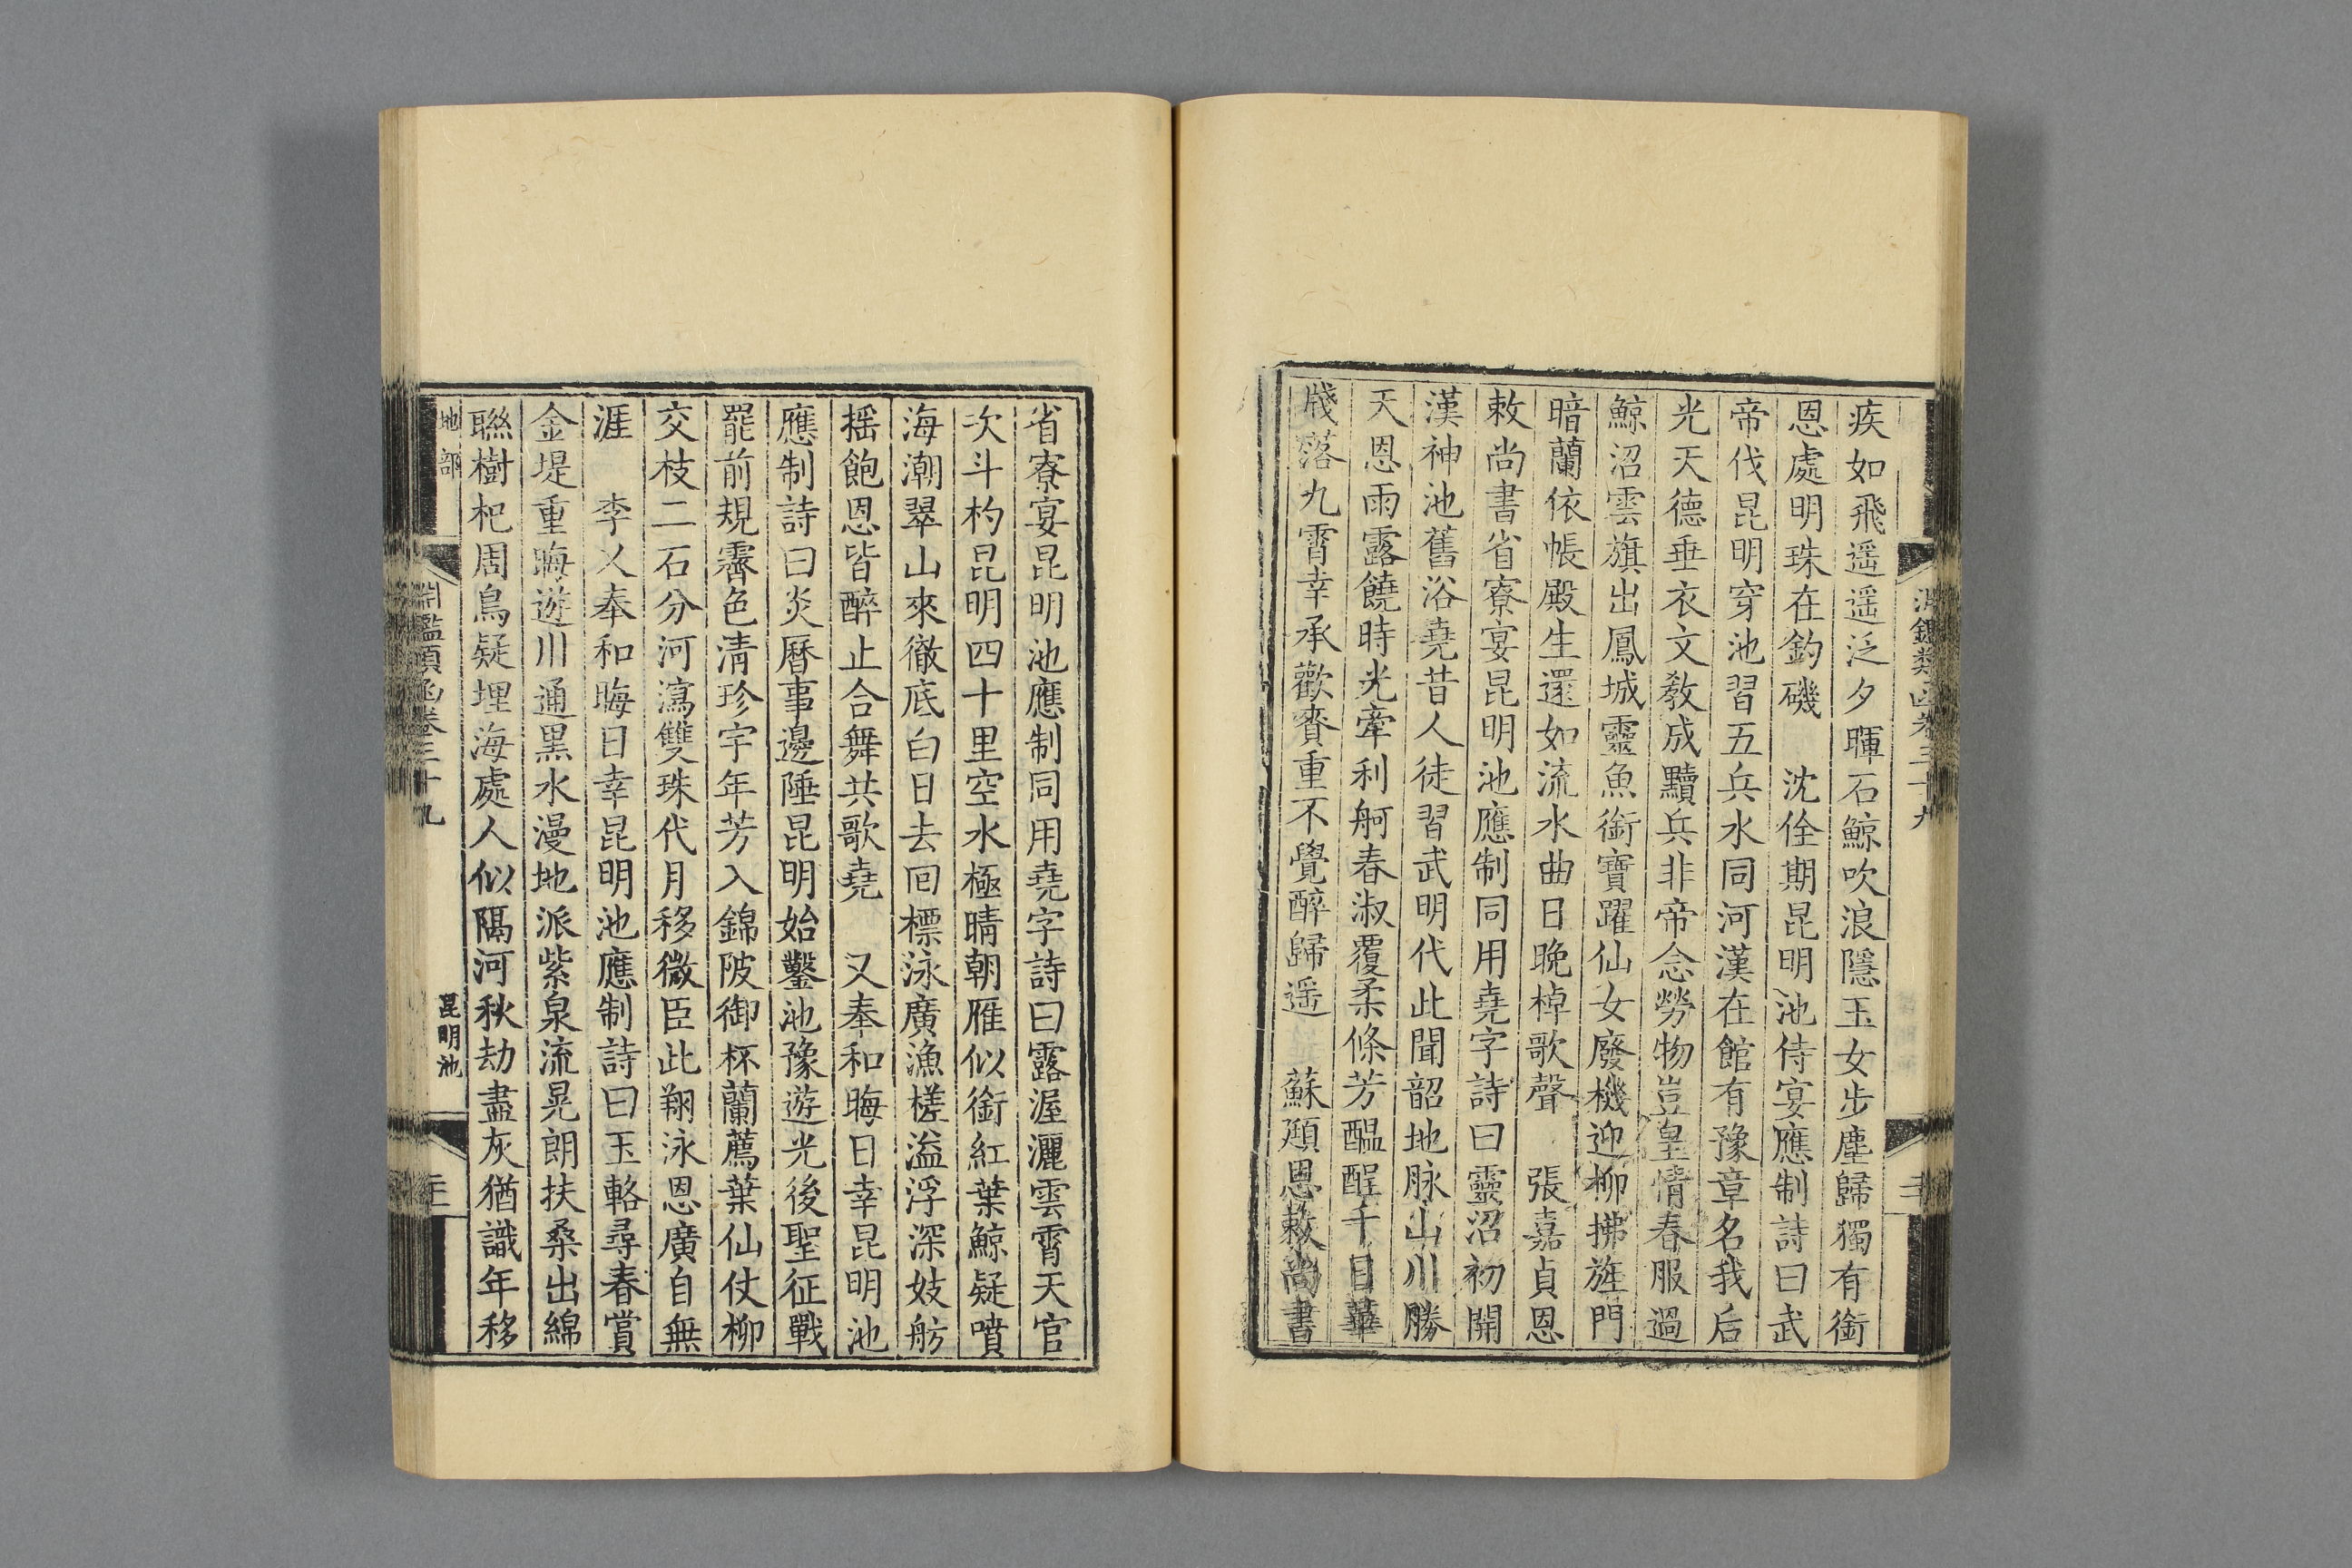 疾如飛遥遥泛夕暉石鯨吹浪隱玉女步塵歸獨有銜
恩處明珠在釣磯　沈佺期昆明池侍宴應制詩曰武
帝伐昆明穿池習五兵水同河漢在館有豫章名我后
光天德垂衣文教成黷兵非帝念勞物豈皇情春服過
鯨沼雲旗出鳳城靈魚銜寶躍仙女廢機迎柳拂旌門
暗蘭依帳殿生還如流水曲日晚棹歌聲　張嘉貞恩
敕尚書省寮宴昆明池應制同用堯字詩曰靈沼初開
漢神池舊浴堯昔人徒習武明代此聞韶地脉山川勝
天恩雨露饒時光牽利舸春淑覆柔條芳醖酲千日華
牋落九霄幸承歡賚重不覺醉歸遥　蘇頲恩敕尚書
省寮宴昆明池應制同用堯字詩曰露渥灑雲霄天官
次斗杓昆明四十里空水極晴朝雁似銜紅葉鯨疑噴
海潮翠山來徹底白日去回標泳廣漁槎溢浮深妓舫
摇飽恩皆醉止合舞共歌堯　又奉和晦日幸昆明池
應制詩曰炎曆事邊陲昆明始鑿池豫遊光後聖征戰
罷前規霽色清珍宇年芳入錦陂御杯蘭薦葉仙仗柳
交枝二石分河瀉雙珠代月移微臣此翔泳恩廣自無
涯　李乂奉和晦日幸昆明池應制詩曰玉輅尋春賞
金堤重晦遊川通黑水漫地派紫泉流晃朗扶桑出綿
聯樹杞周鳥疑埋海處人似隔河秋劫盡灰猶識年移
地部
淵鑑類函卷三十九
昆明池